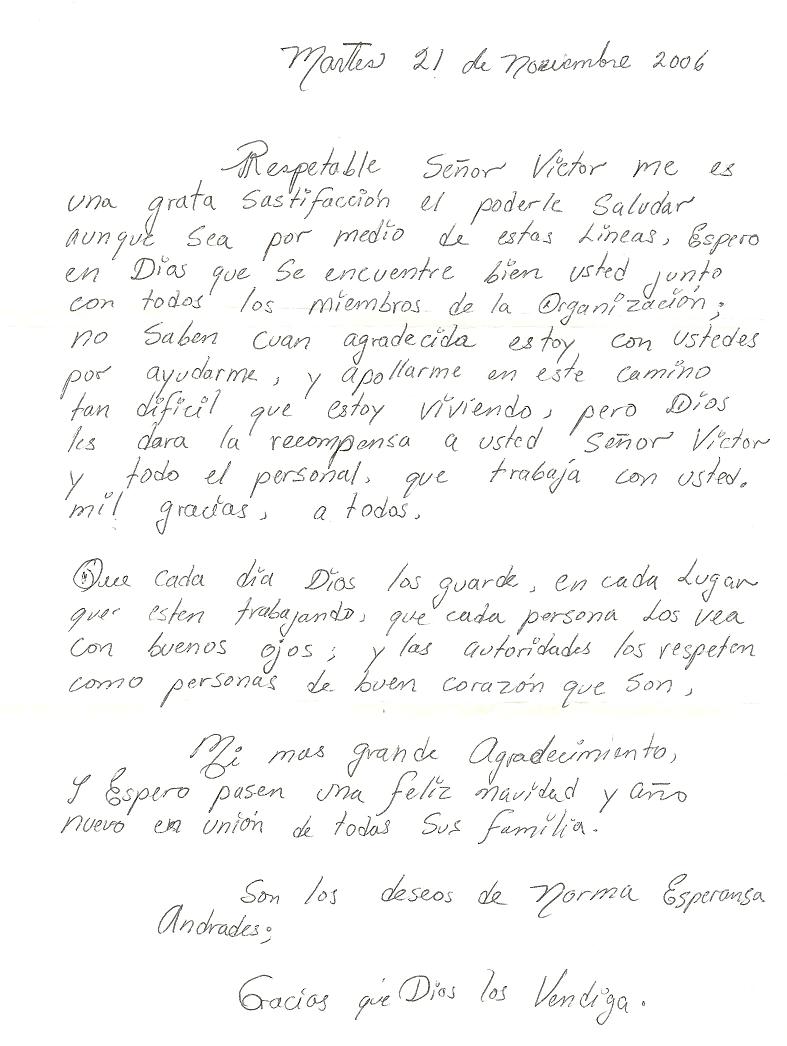 Martes 21 de Noviembre 2006
Respetable Señor Victor me es
una grata Sastifacción el poderle Saludar
aunque Sea por medio de estas Lineas, Espero
en Dios que Se encuentre bien usted junto
con todos los miembros de la Organización;
no Saben cuan agradecida estoy con ustedes
por ayudarme, y apollarme en este camino
tan dificil que estoy viviendo, pero Dios
les dara la recompensa a usted Señor Victor
y todo el personal, que trabaja con usted.
mil gracias, a todos.
Que cada dia Dios los guarde, en cada Lugar
que esten trabajando, que cada persona Los vea
con buenos ojos; y las autoridades los respeten
como personas de buen corazón que Son,
Mi mas grande Agradecimiento,
y Espero pasen una feliz navidad y año
nuevo en unión de todas Sus familia.
Son los deseos de Norma Esperansa
Andrades;
Gracias que Dios los Vendiga.